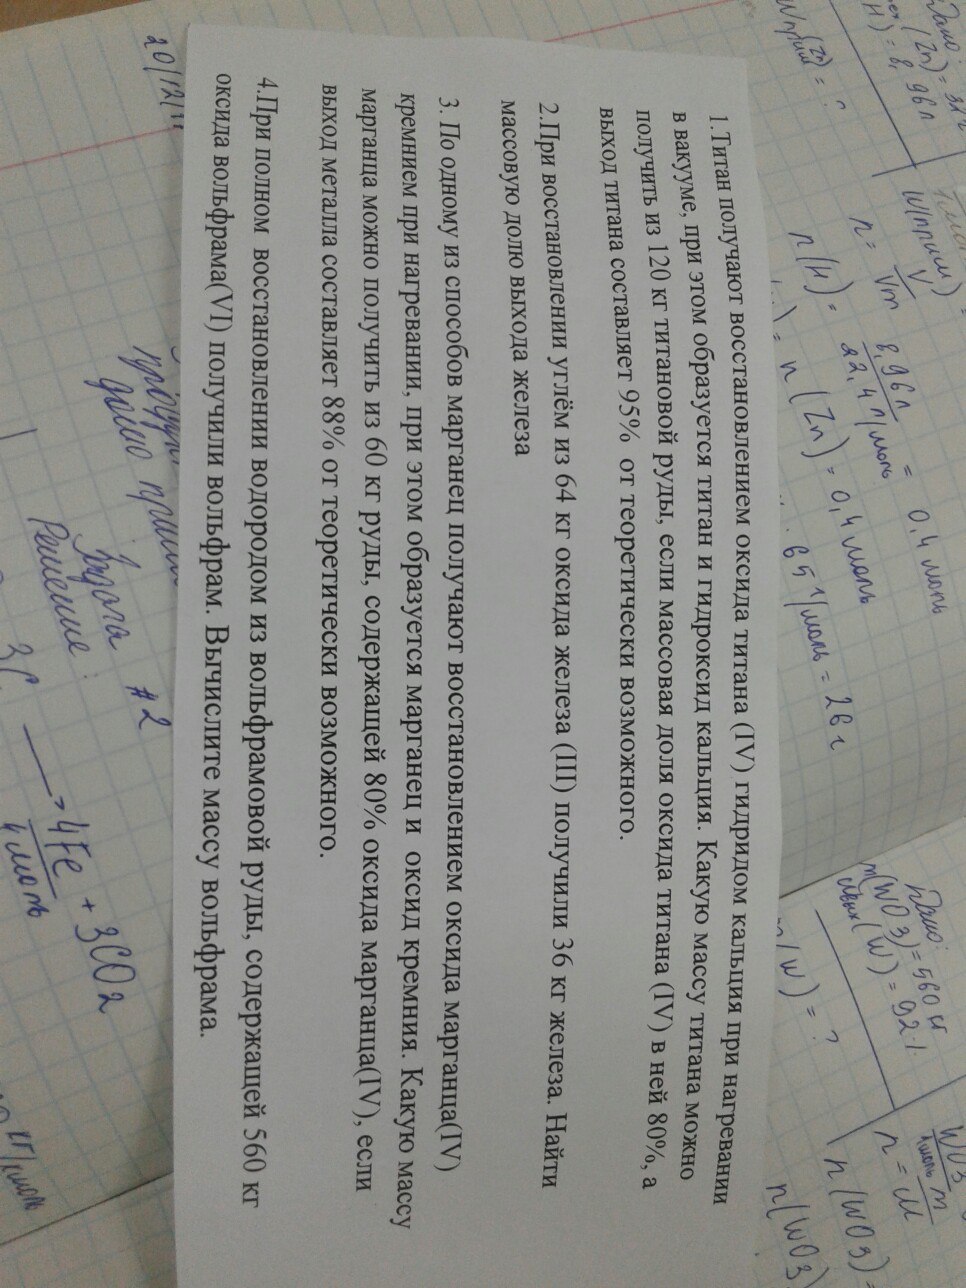 1.Титан получают восстановлением оксида титана (IV) гидридом кальция при нагревании
в вакууме, при этом образуется титан и гидроксид кальция. Какую массу титана можно
получить из 120 кг титановой руды, если массовая доля оксида титана (IV) в ней 80%, а
выход титана составляет 95% от теоретически возможного.
2.При восстановлении углём из 64 кг оксида железа (III) получили 36 кг железа. Найти
массовую долю выхода железа
3. По одному из способов марганец получают восстановлением оксида марганца(IV)
кремнием при нагревании, при этом образуется марганец и оксид кремния. Какую массу
марганца можно получить из 60 кг руды, содержащей 80% оксида марганца(IV), если
выход металла составляет 88% от теоретически возможного.
4.При полном восстановлении водородом из вольфрамовой руды, содержащей 560 кг
оксида вольфрама(VI) получили вольфрам. Вычислите массу вольфрама.
Дано:
(Zn) =
8,96 л
W(прим)
n = V/Vm
8,96 л / 22,4 л/моль = 0.4 моль
n(H) =
n(Zn) = 0,4 моль
65 г/моль = 26 г
Дано:
m(WO3) = 560 кг
(W) = 92%
m(W) = ?
WO3
1 моль
n = m/M
n(WO3) =
n(WO3)
20/12/
долю прим
Задача #2
Решение:
→ 4Fe + 3CO2
4 моль
кг/кмоль